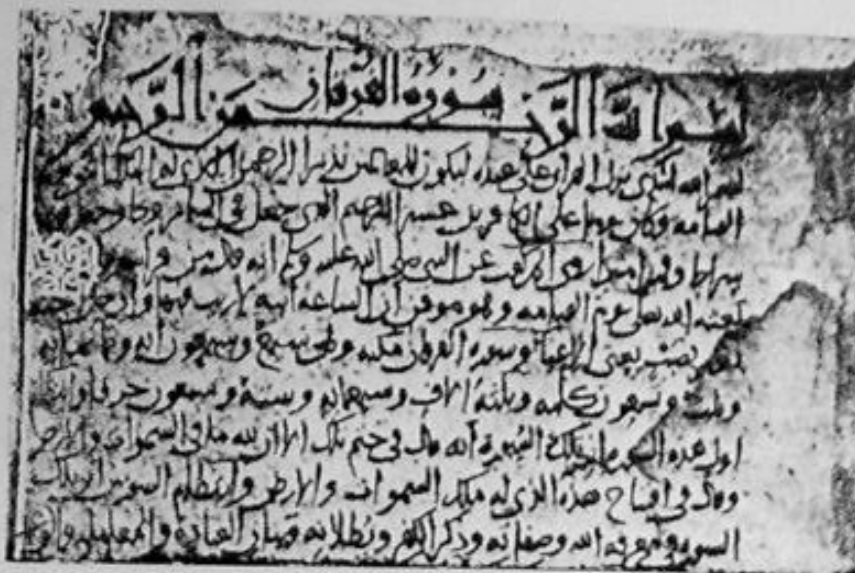 سورة الفرقان
بسم الله الرحمن الرحيم
بسم الله الذي نزل الفرقان على عبده ليكون للعالمين نذيرا الرحمن الذي له الملك
القيامه وكان يوما على الكافرين عسيرا الرحيم الذي جعل في السماء بروجا وجعل
سراجا وقمرا منيرا عن ابي بن كعب عن النبي صلى الله عليه وسلم انه قال من قرا
بعثه الله تعالى يوم القيامه وهو موقن ان الساعه اتيه لا ريب فيها
بغير نصب يعني الاعيا وسورة الفرقان مكيه وهي سبع وسبعون ايه
وثلث وسبعون كلمه وثلثة الاف وسبعمايه وستة وسبعون حرفا
اول هذه السورة تلك السورة انه قال في ختم تلك الا ان لله ما في السموات والارض
وقال في افتتاح هذه الذي له ملك السموات والارض وانتظام السورتين ان تلك
السورة في معرفة الله وصفاته وذكر الكفر وبطلانه وبيان العبادة والمعاملة